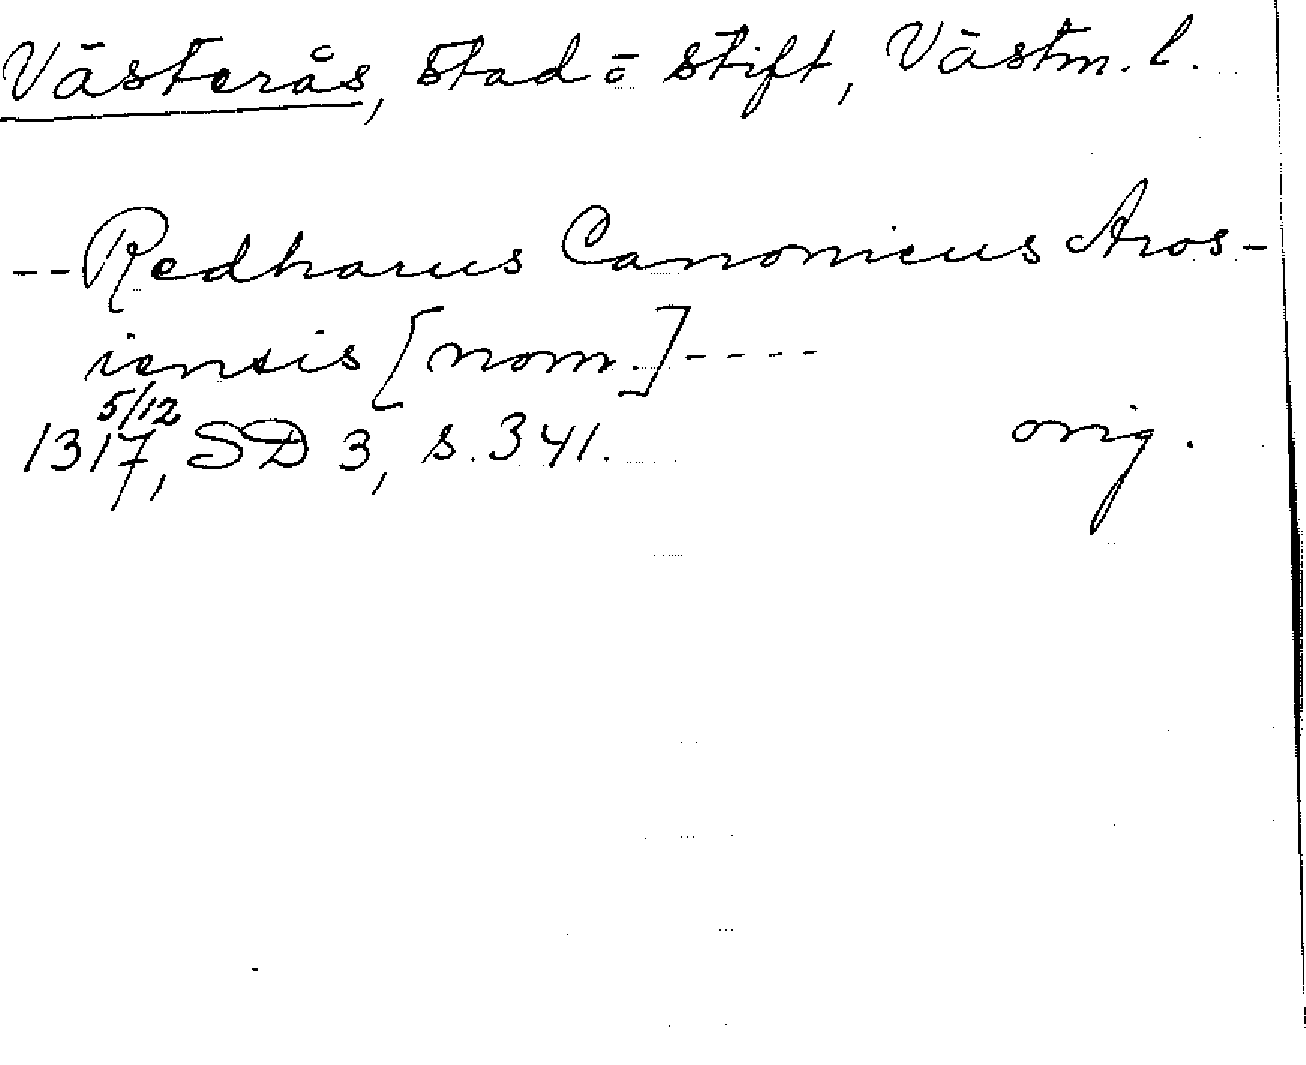 Västerås, stad ō stift, Västm. l.
--Redharus Canonicus Aros-
iensis [nom.]----
5/12
1317, SD 3, s. 341. orig.